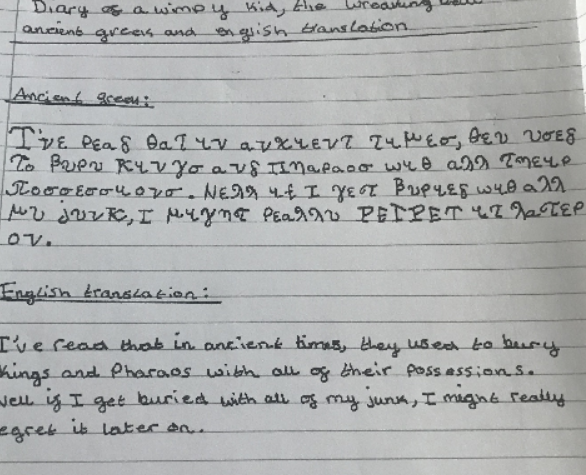 Diary of a wimpy kid, the wrecking
ancient greek and english translation
Ancient greek:
I'νε ρεαδ θατ ιν ανχιεντ τιμεσ, θευ υσεδ
το βυρυ κινγσ ανδ πηαραοσ ωιθ αλλ τηειρ
ποσσεσσιονσ. Νελλ ιf I γετ βυριεδ ωιθ αλλ
μυ jυνκ, I μιγητ ρεαλλυ ΡΕΓΡΕΤ ιτ λατερ
ον.
English translation:
I've read that in ancient times, they used to bury
kings and Pharaos with all of their possessions.
well if I get buried with all of my junk, I might really
egret it later on.